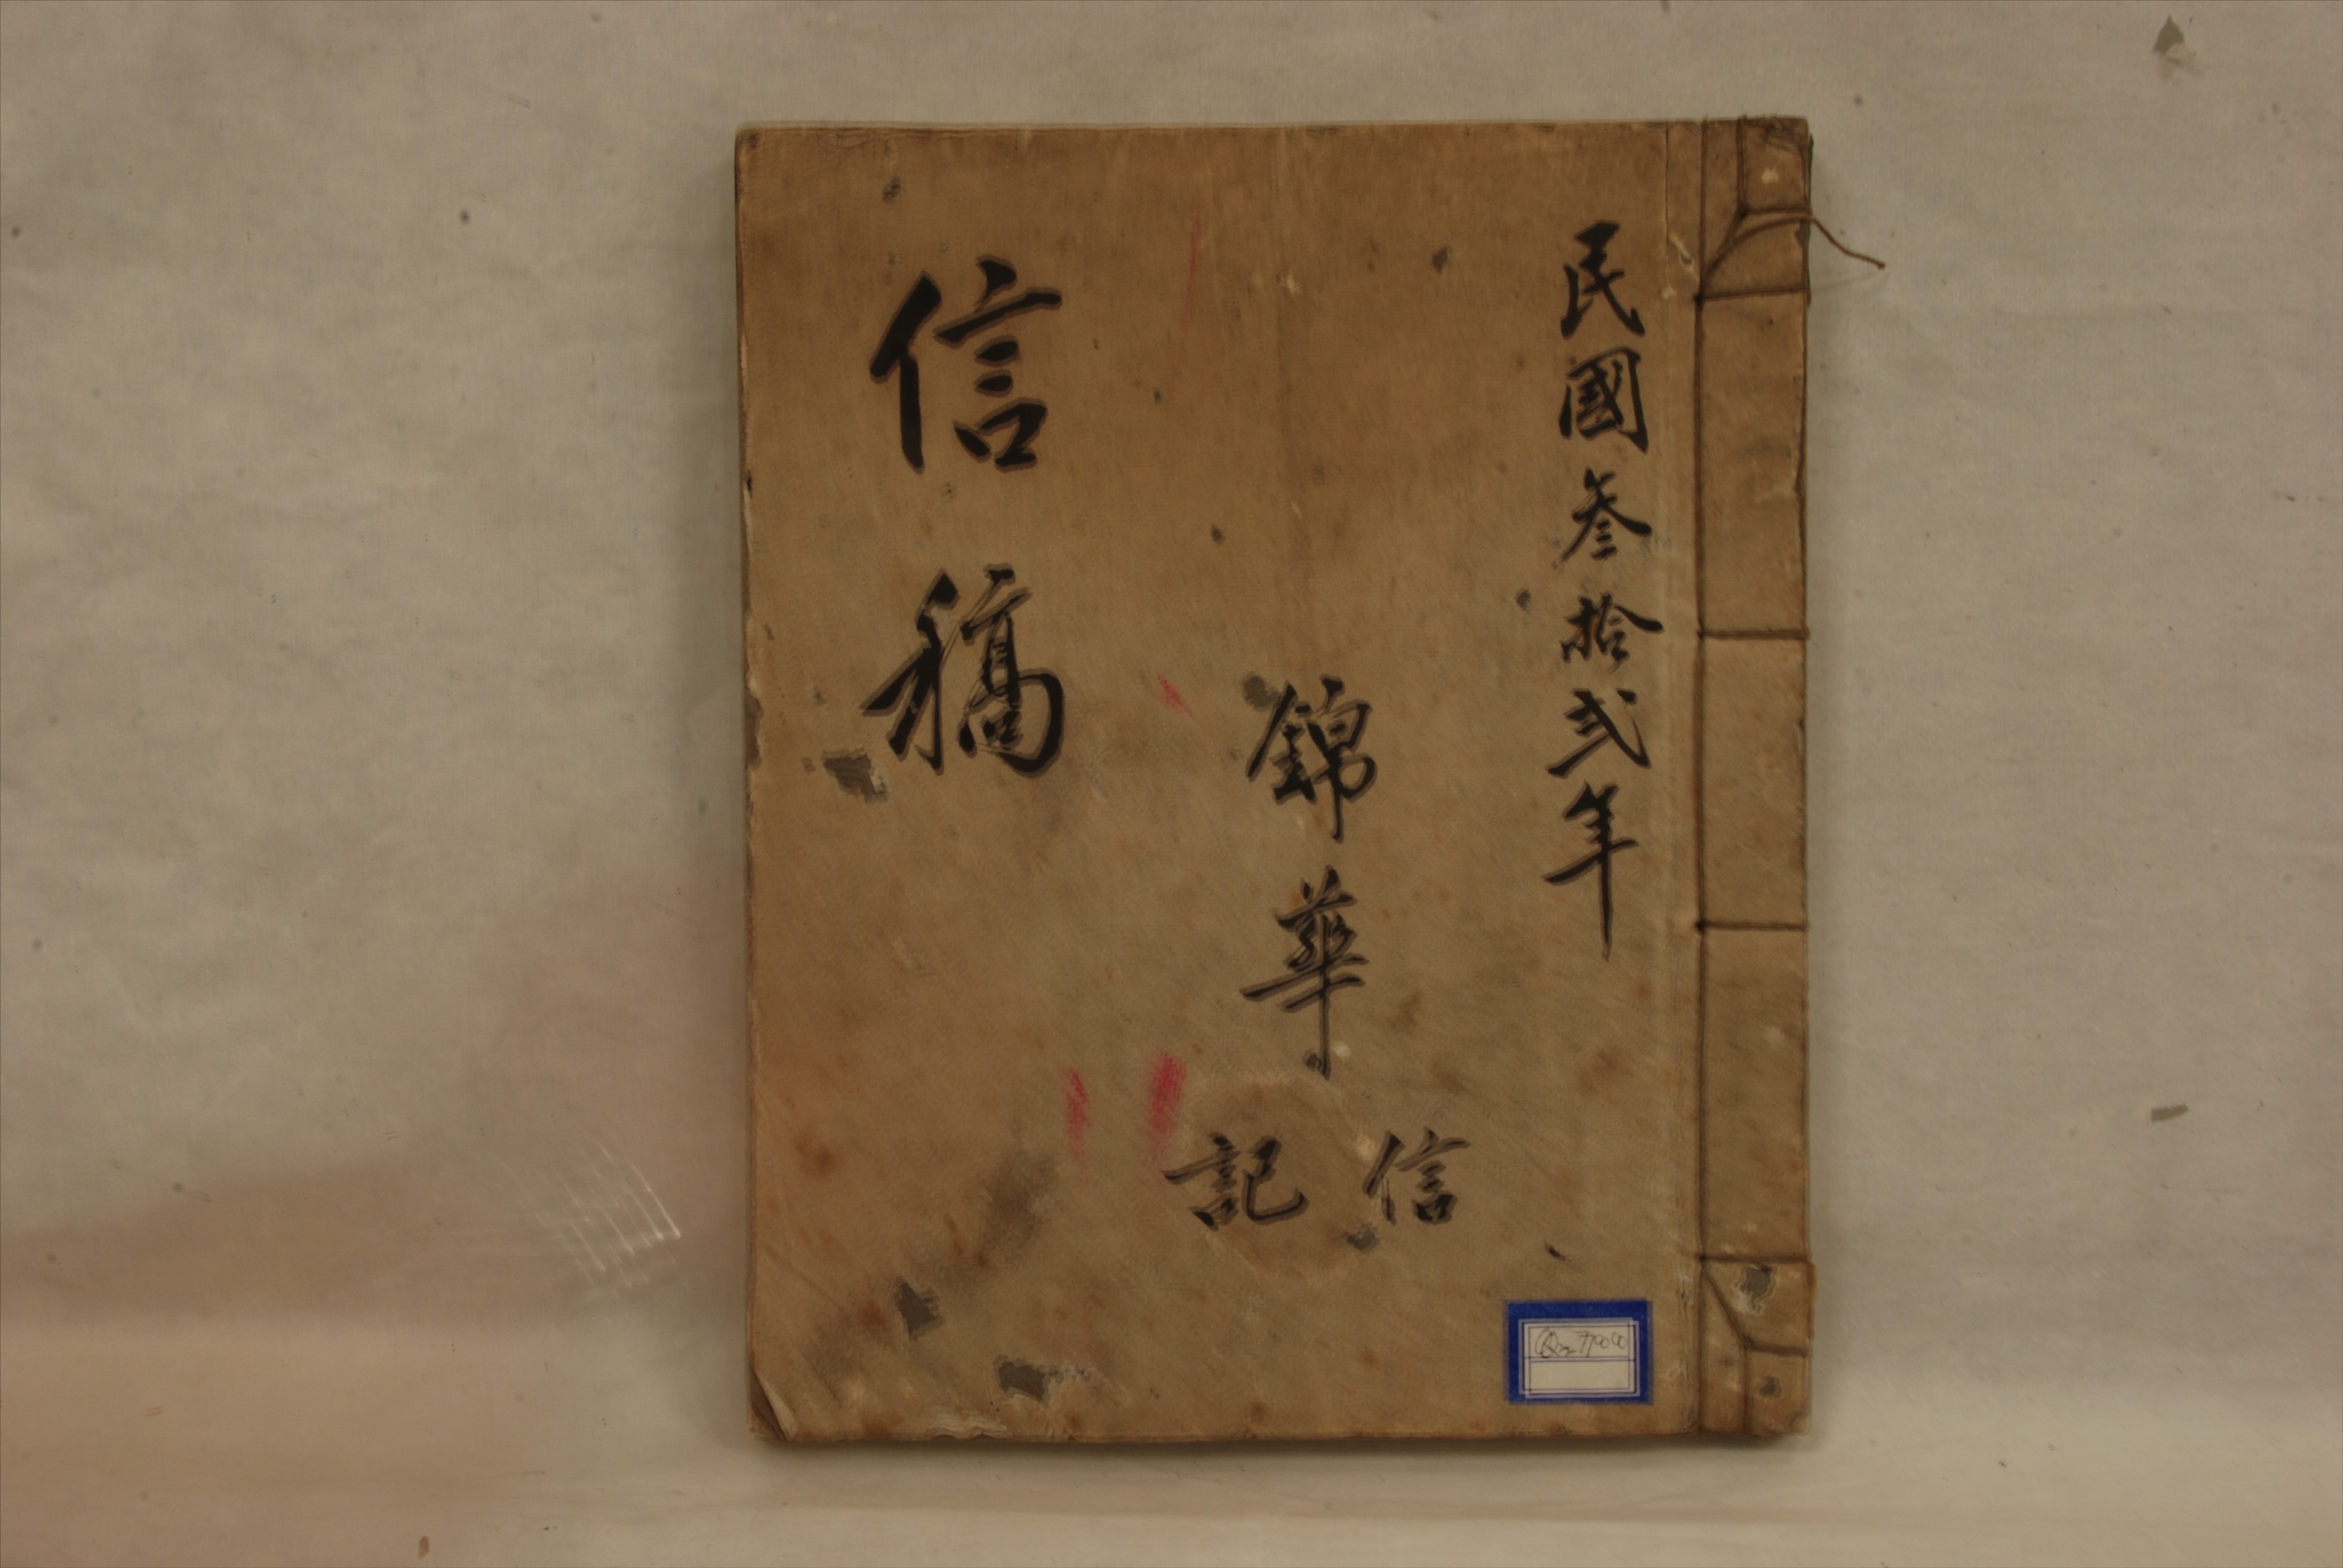 民國叁拾弍年
錦華
信記
信稿